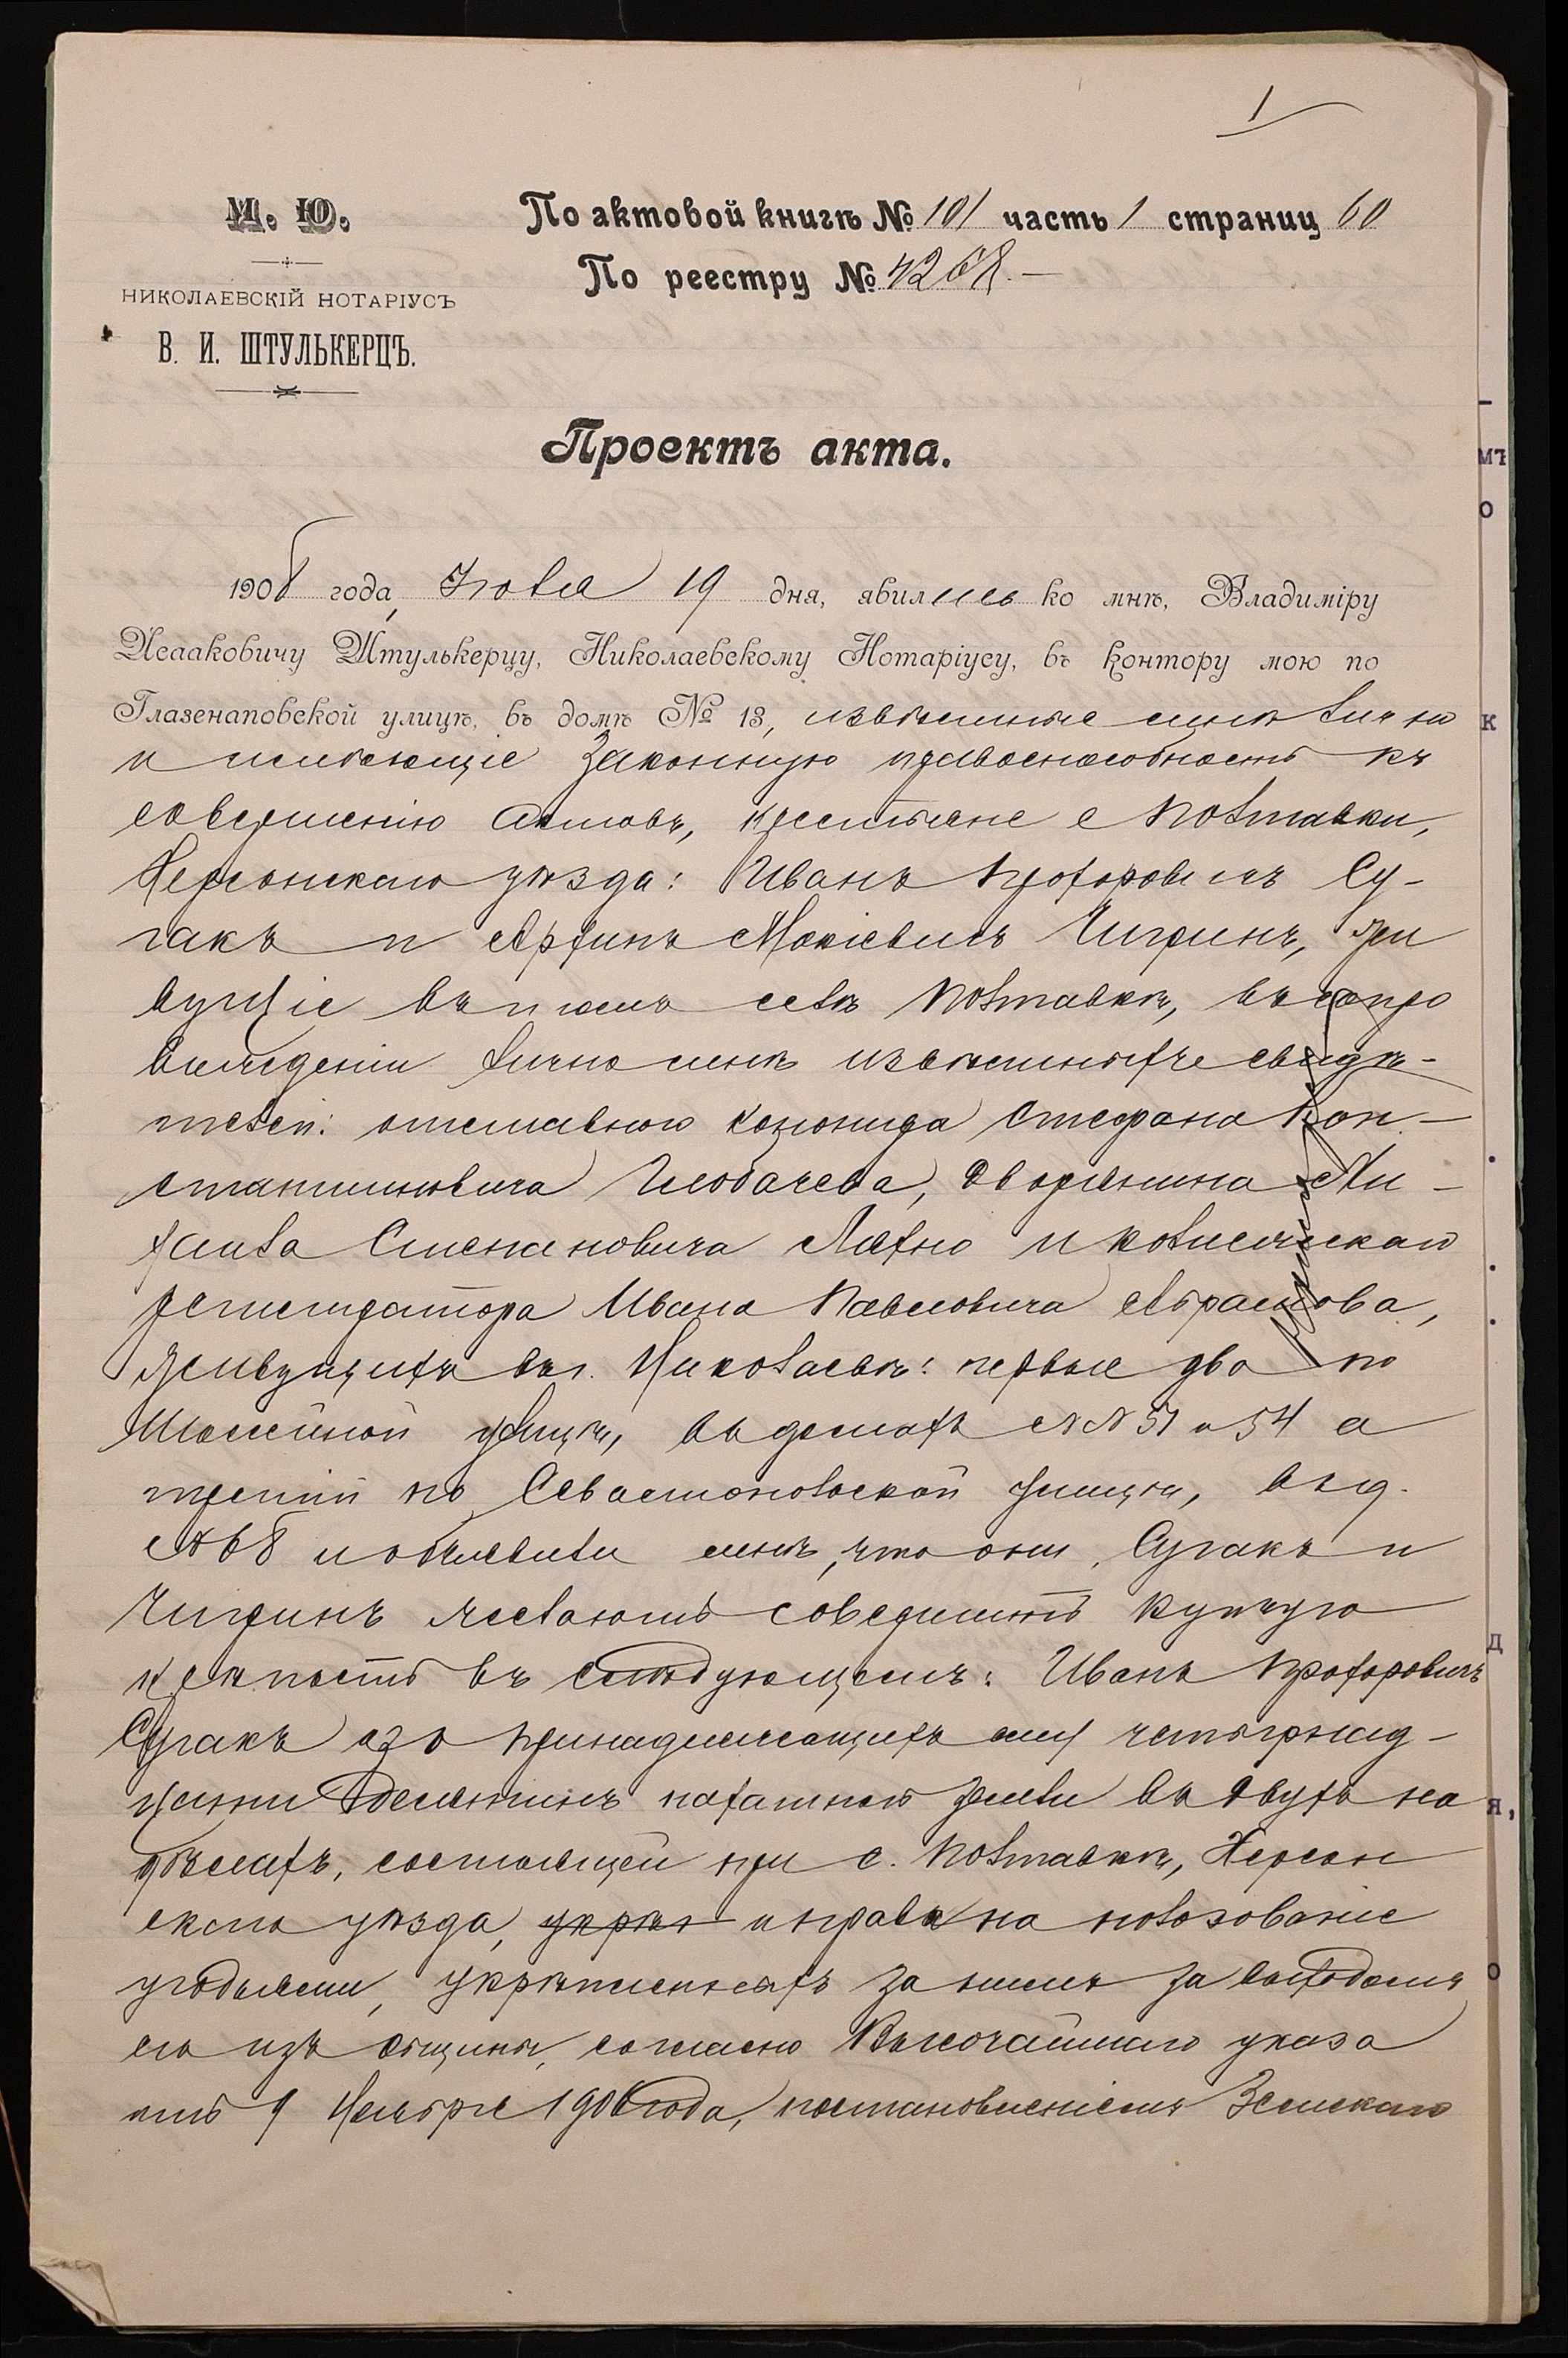 1
М. Ю.
НИКОЛАЕВСКІЙ НОТАРІУСЪ
В. И. ШТУЛЬКЕРЦЪ.
По актовой книгѣ № 101 часть 1 страниц 60
По реестру № 4268.—
Проектъ акта.
1908 года, Іюля 19 дня, явились ко мнѣ, Владиміру
Исааковичу Штулькерцу, Николаевскому Нотаріусу, въ контору мою по
Глазенаповской улицѣ, въ домѣ № 13, извѣстные мнѣ лично
и имѣющіе законную правоспособность къ
совершенію актовъ, крестьяне с Полтавки,
Херсонскаго уѣзда: Иванъ Прохоровичъ Су-
гакъ и Архипъ Мокіевичъ Чигринъ, жи
вущіе въ томъ селѣ Полтавкѣ, въ сопро
вожденіи лично мнѣ извѣстныхъ свидѣ-
телей: отставного Стефана Кон-
стантиновича дворянина Ми-
хаила Степановича Лахно и коллежскаго
регистратора Ивана Павловича Абрамова,
живущихъ въ г. Николаевѣ: первые два по
Шоссейной улицѣ, въ домахъ №№ 51 и 54 а
третій по Севастопольской улицѣ, въ д.
№ 68 и объявили мнѣ, что они, Сугакъ и
Чигринъ желаютъ совершить купчую
крѣпость въ слѣдующемъ: Иванъ Прохоровичъ
Сугакъ изъ принадлежащихъ ему четырнад-
цати десятинъ пахатной земли въ двухъ на
дѣлахъ, состоящей при с. Полтавкѣ, Херсон
скаго уѣзда, укрѣп и права на пользованіе
угодьями, укрѣпленныхъ за нимъ за выходомъ
его изъ общины, согласно Высочайшаго указа
отъ 9 Ноября 1906 года, постановленіемъ Земскаго
мъ
о
к
д
я,
о